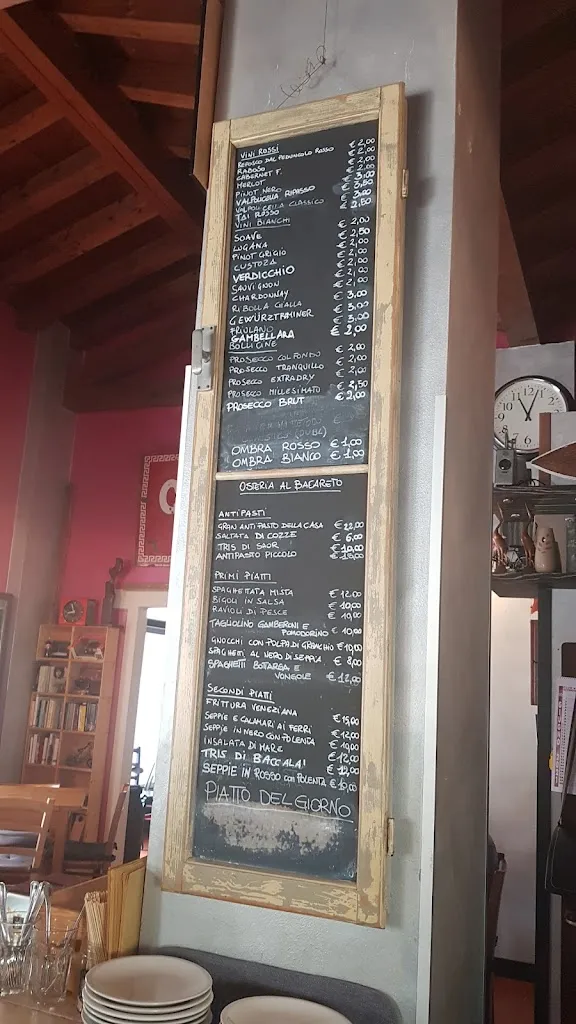 VINI ROSSI
REFOSCO DAL PEDUNCOLO ROSSO € 2,00
RABOSO € 2,00
CABERNET F. € 2,00
MERLOT € 2,00
PINOT NERO € 3,00
VALPOLICELLA RIPASSO € 3,50
VALPOLICELLA CLASSICO € 3,00
TAI ROSSO € 2,50
VINI BIANCHI
SOAVE € 2,00
LUGANA € 2,50
PINOT GRIGIO € 2,00
CUSTOZA € 2,00
VERDICCHIO € 2,00
SAUVIGNON € 2,00
CHARDONNAY € 2,00
RIBOLLA GIALLA € 3,00
GEWÜRZTRAMINER € 3,00
FRIULANO € 3,00
GAMBELLARA € 2,00
BOLLICINE
PROSECCO COL FONDO € 2,00
PROSECCO TRANQUILLO € 2,00
PROSECCO EXTRADRY € 2,00
PROSECCO MILLESIMATO € 2,50
PROSECCO BRUT € 2,00
OMBRA ROSSO € 1,00
OMBRA BIANCO € 1,00
OSTERIA AL BACARETO
ANTIPASTI
GRAN ANTIPASTO DELLA CASA € 22,00
SALTATA DI COZZE € 6,00
TRIS DI SAOR € 10,00
ANTIPASTO PICCOLO
PRIMI PIATTI
SPAGHETTATA MISTA € 12,00
BIGOLI IN SALSA € 10,00
RAVIOLI DI PESCE € 10,00
TAGLIOLINO GAMBERONI E
POMODORINO € 10,00
GNOCCHI CON POLPA DI GRANCHIO € 10,00
SPAGHETTI AL NERO DI SEPPIA € 8,00
SPAGHETTI BOTARGA E
VONGOLE € 12,00
SECONDI PIATTI
FRITTURA VENEZIANA € 15,00
SEPPIE E CALAMARI AI FERRI € 12,00
SEPPIE IN NERO CON POLENTA € 10,00
INSALATA DI MARE € 12,00
TRIS DI BACCALA' € 12,00
SEPPIE IN ROSSO CON POLENTA € 10,00
PIATTO DEL GIORNO